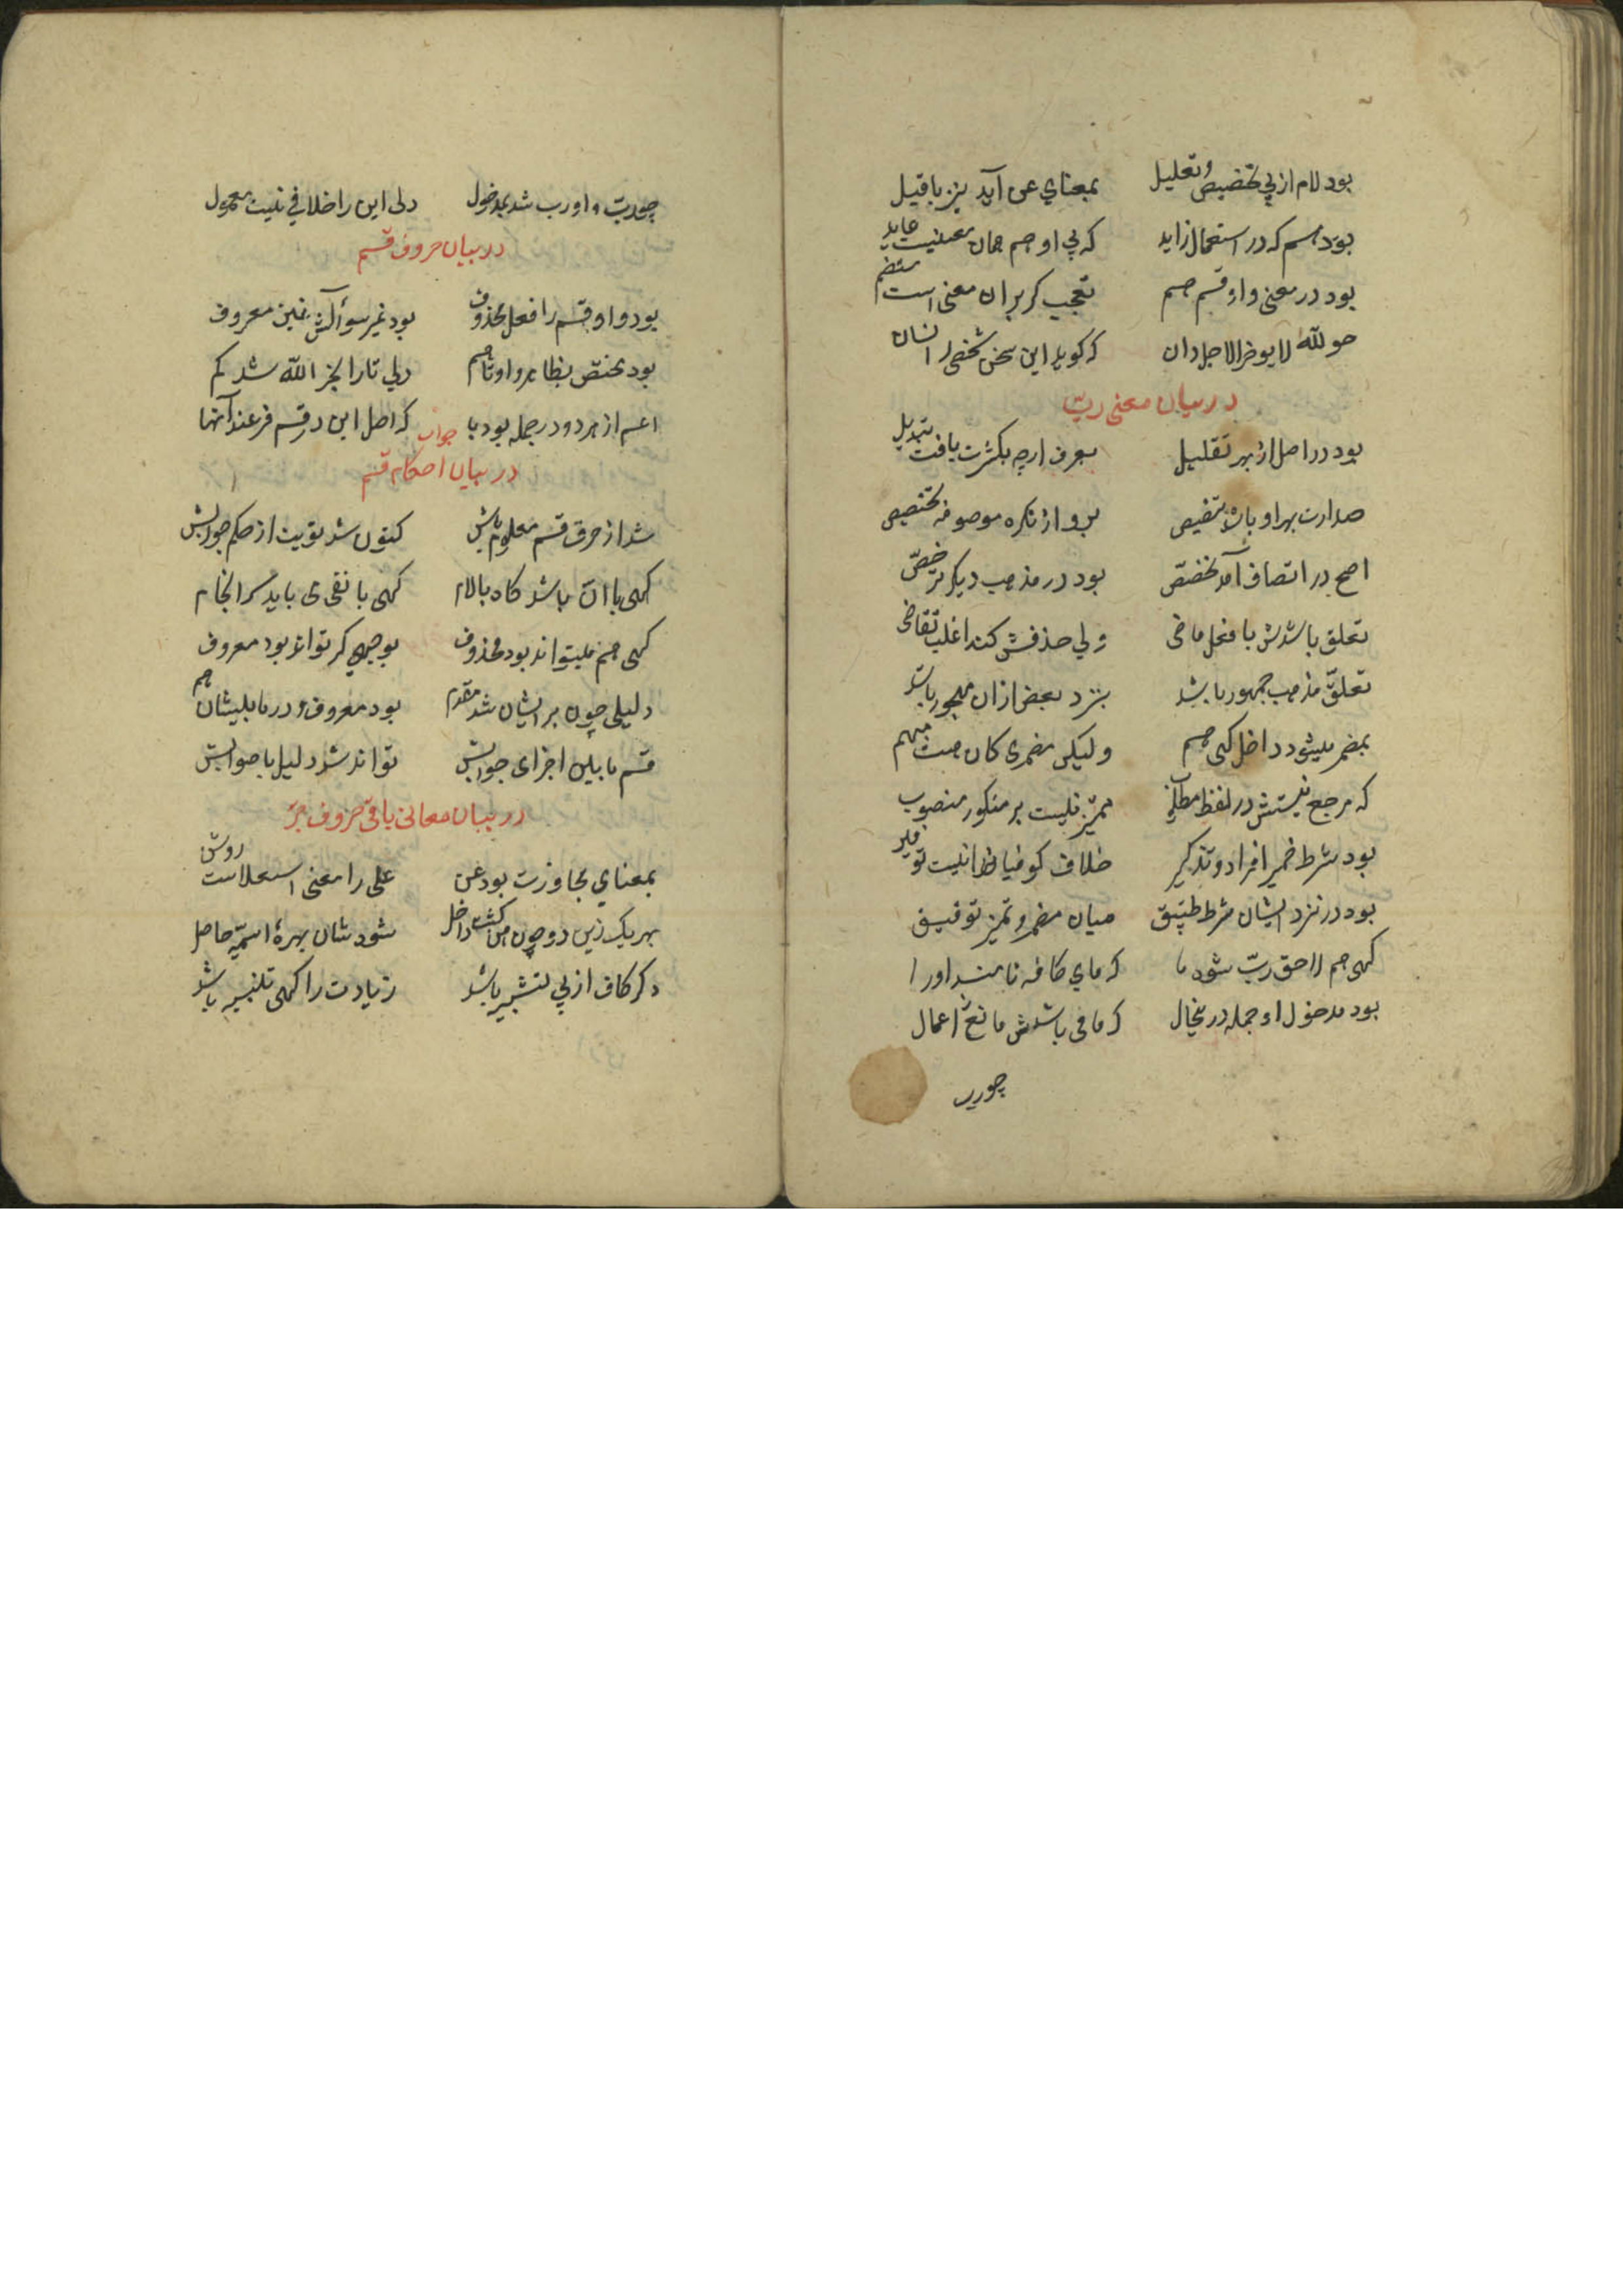 بود لام از پی تخصیص و تعلیل بمعنای عن آید نیز با قیل
بود هم که در استعمال زاید که بی او هم همان معنیت عاید
بود در معنی واو قسم هم تعجب گر بران معنی است منضم
چو لله لا یوخر الاجل دان که گوید این سخن شخصی ز انسان
در بیان معنی ربّ
بود در اصل از بهر تقلیل بعرف ارچه بکثرت یافت تبدیل
صدارت بهر او باشد بتنصیص برو از نکره موصوفه تخصیص
اصح در اتصاف آمد مخصّص بود در مذهب دیگر مرخّص
تعلق باشدش با فعل ماضی ولی حذفش کند اغلب تقاضی
تعلّق مذهب جمهور باشد بنزد بعض ازان مهجور باشد
بمضمر میشود داخل گهی هم ولیکن مضمری کان هست مبهم
که مرجع نیستش در لفظ مطلوب ممیّز نیست بر منکور منصوب
بود شرط ضمیر افراد و تذکیر خلاف کوفیان را نیست توفیر
بود در نزد ایشان شرط تطبیق میان مضمر و تمیز توفیق
گهی هم لاحق ربّ شود ما که مای کافه نامند او را
بود مدخول او جمله درینحال که مافی باشدش مانع ز اعمال
چورب
چو ربّ واو رب شد بمدخول ولی این را خلافی نیست معمول
در بیان حروف قسم
بود واو قسم را فعل محذوف بود غیر سوآلش نیز معروف
بود مختص بظاهر واو و تا هم ولی تا را بجز الله شد کم
اعم از هر دو در جمله بود با که اصل این در قسم فرعند آنها
جواب
در بیان احکام قسم
شد از حرف قسم معلوم بابش کنون شد نوبت از حکم جوابش
گهی با انّ باشد گاه با لام گهی با نفی ی باید سرانجام
گهی هم میتواند بود محذوف بوجهی گر تواند بود معروف
دلیلی چون بر ایشان شد مقدم بود معروف و در مابینشان هم
قسم مابین اجزای جوابش تواند شد دلیل با صوابش
در بیان معانی باقی حروف جرّ
بمعنای مجاوزت بود عن علی را معنی استعلاست روشن
بهر یک زین دو چون من گشت داخل شود شان بهرهٔ اسمیّه حاصل
دگر کاف از پی تشبیه باشد زیادت را گهی تنبیه باشد